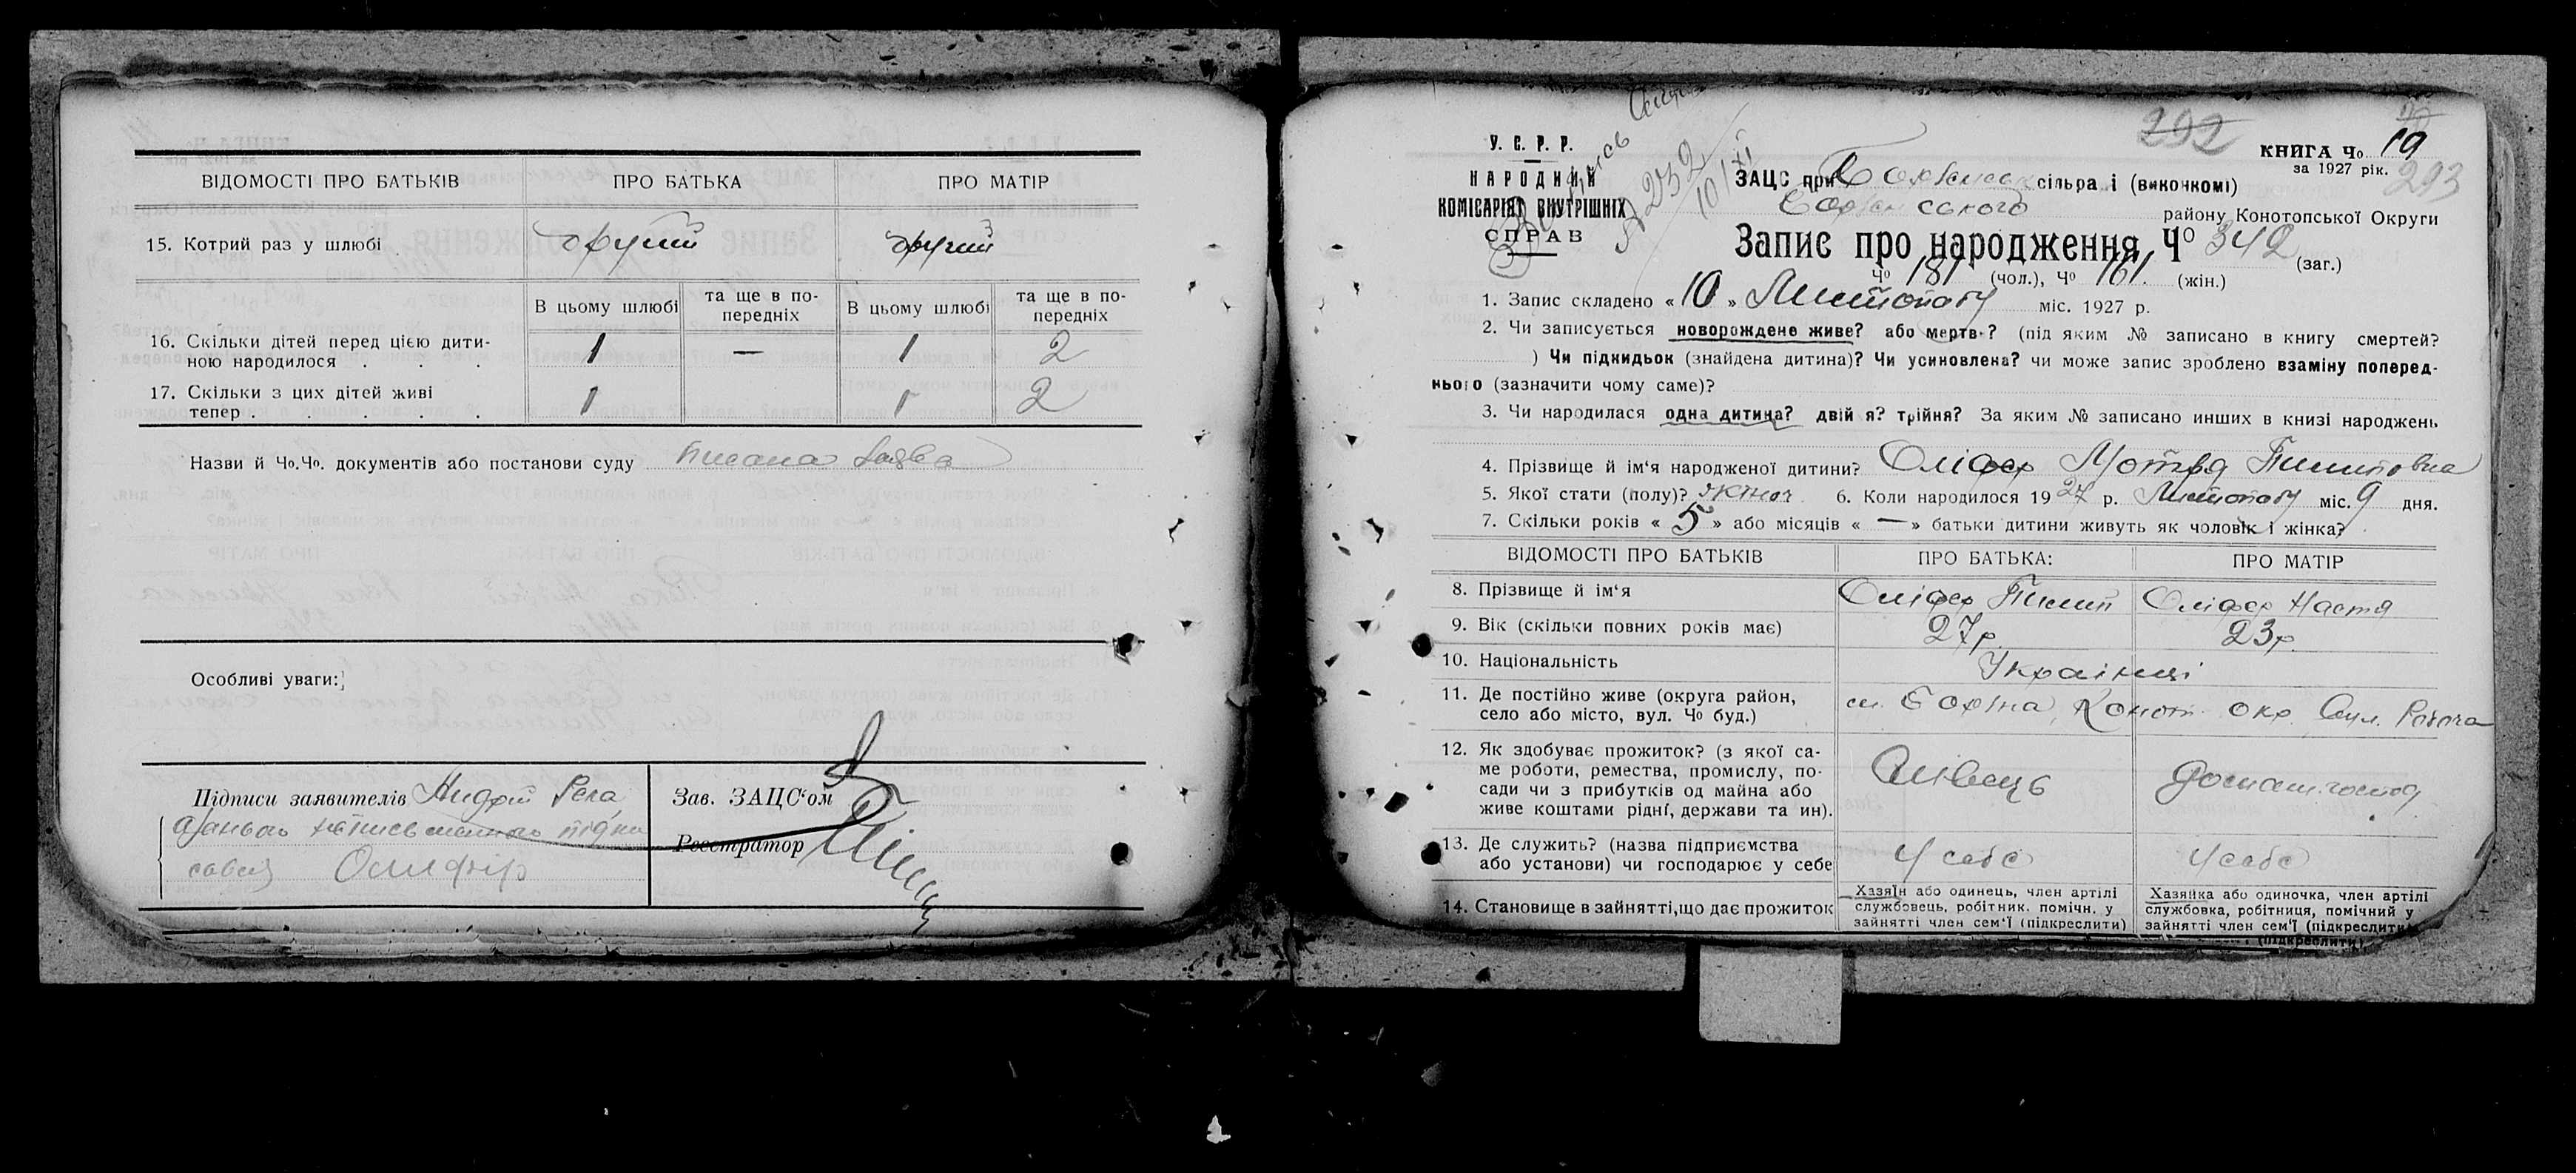 ВІДОМОСТІ ПРО БАТЬКІВ ПРО БАТЬКА ПРО МАТІР
15. Котрий раз у шлюбі другий другий
В цьому шлюбі та ще в по-передніх В цьому шлюбі та ще в по-передніх
16. Скільки дітей перед цією дити-
ною народилося . . . 1 — 1 2
17. Скільки з цих дітей живі
тепер . . . . . 1 1 2
Назви й Чо.Чо. документів або постанови суду Писана заява
Особливі уваги:
Підписи заявителів Андрій Река
Зав. ЗАЦС'ом
Реєстратор
292
19
293
У. С. Р. Р.
НАРОДНИЙ
КОМІСАРІЯТ ВНУТРІШНІХ
СПРАВ
232
10/XI
КНИГА Чо 19
за 1927 рік.
ЗАЦС при сільра і (виконкомі)
району Конотопської Округи
Запис про народження Чо 342 (заг.)
Чо 181 (чол.), Чо 161. (жін.)
1. Запис складено « 10 » Листопаду міс. 1927 р.
2. Чи записується новорождене живе? або мертв ? (під яким № записано в книгу смертей?
) Чи підкидьок (знайдена дитина)? Чи усиновлена? чи може запис зроблено взаміну поперед-
нього (зазначити чому саме)?
3. Чи народилася одна дитина? двій я? трійня? За яким № записано инших в книзі народжень
4. Прізвище й ім'я народженої дитини? Оліфер Мотря Пилиповна
5. Якої стати (полу)? жіноч 6. Коли народилося 1927 р. Листопаду міс. 9 дня.
7. Скільки років « 5 » або місяців « — » батьки дитини живуть як чоловік і жінка?
ВІДОМОСТІ ПРО БАТЬКІВ ПРО БАТЬКА: ПРО МАТІР
8. Прізвище й ім'я Оліфер Пилип Оліфер Настя
9. Вік (скільки повних років має) 27р. 23р.
10. Національність Українці
11. Де постійно живе (округа район,
село або місто, вул. Чо буд.) Конот окр.
12. Як здобуває прожиток? (з якої са-
ме роботи, ремества, промислу, по-
сади чи з прибутків од майна або
живе коштами рідні, держави та ин). домаш. господ
13. Де служить? (назва підприємства
або установи) чи господарює у себе У себе У себе
14. Становище в зайнятті, що дає прожиток
Хазяїн або одинець, член артілі
службовець, робітник. помічн. у
зайнятті член сем'ї (підкреслити)
Хазяйка або одиночка, член артілі
службовка, робітниця, помічний у
зайнятті член сем'ї (підкреслити)
(підкреслити)